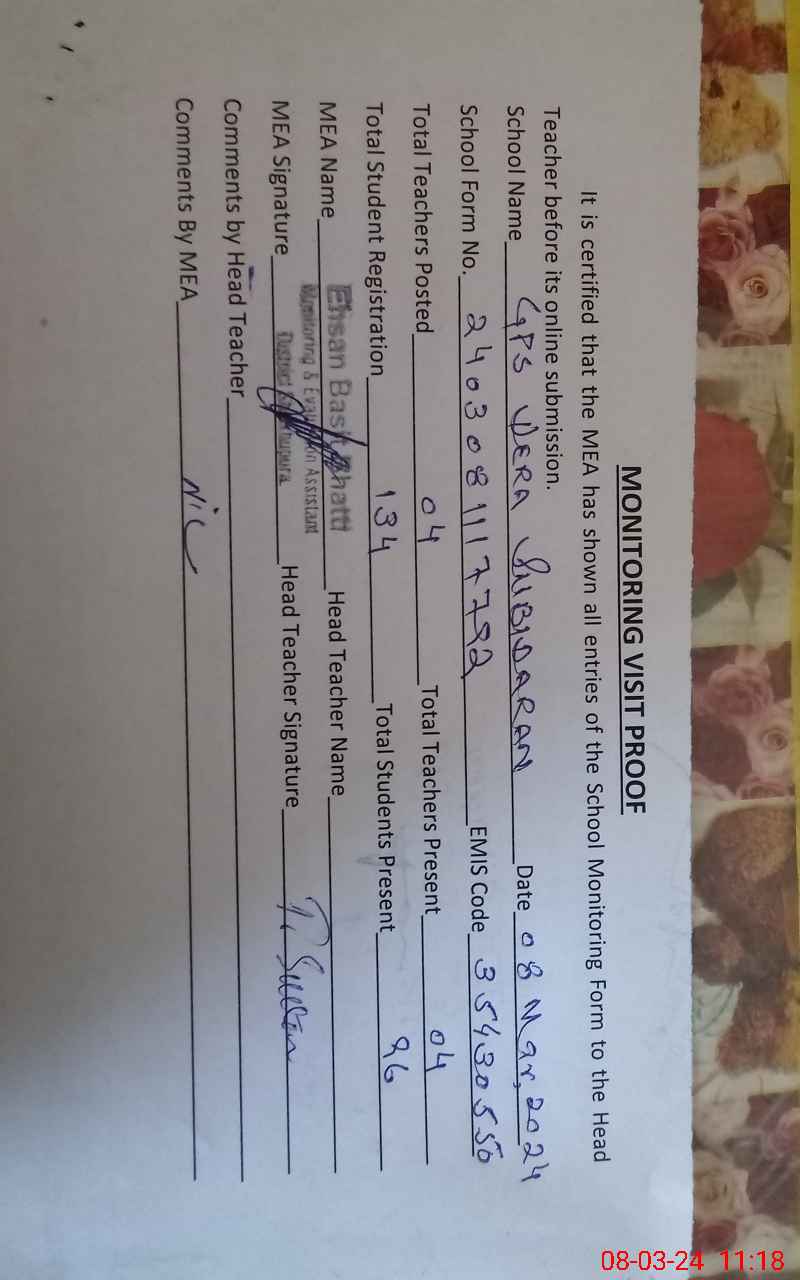 MONITORING VISIT PROOF
It is certified that the MEA has shown all entries of the School Monitoring Form to the Head
Teacher before its online submission.
School Name GPS DERA SUBIDARAN Date 08 Mar, 2024
School Form No. 2403081117792 EMIS Code 35430550
Total Teachers Posted 04 Total Teachers Present 04
Total Student Registration 134 Total Students Present 96
MEA Name Ehsan Bhatti Head Teacher Name
Monitoring & Evaluation Assistant
MEA Signature District Head Teacher Signature
Comments by Head Teacher
Comments By MEA Nil
08-03-24 11:18